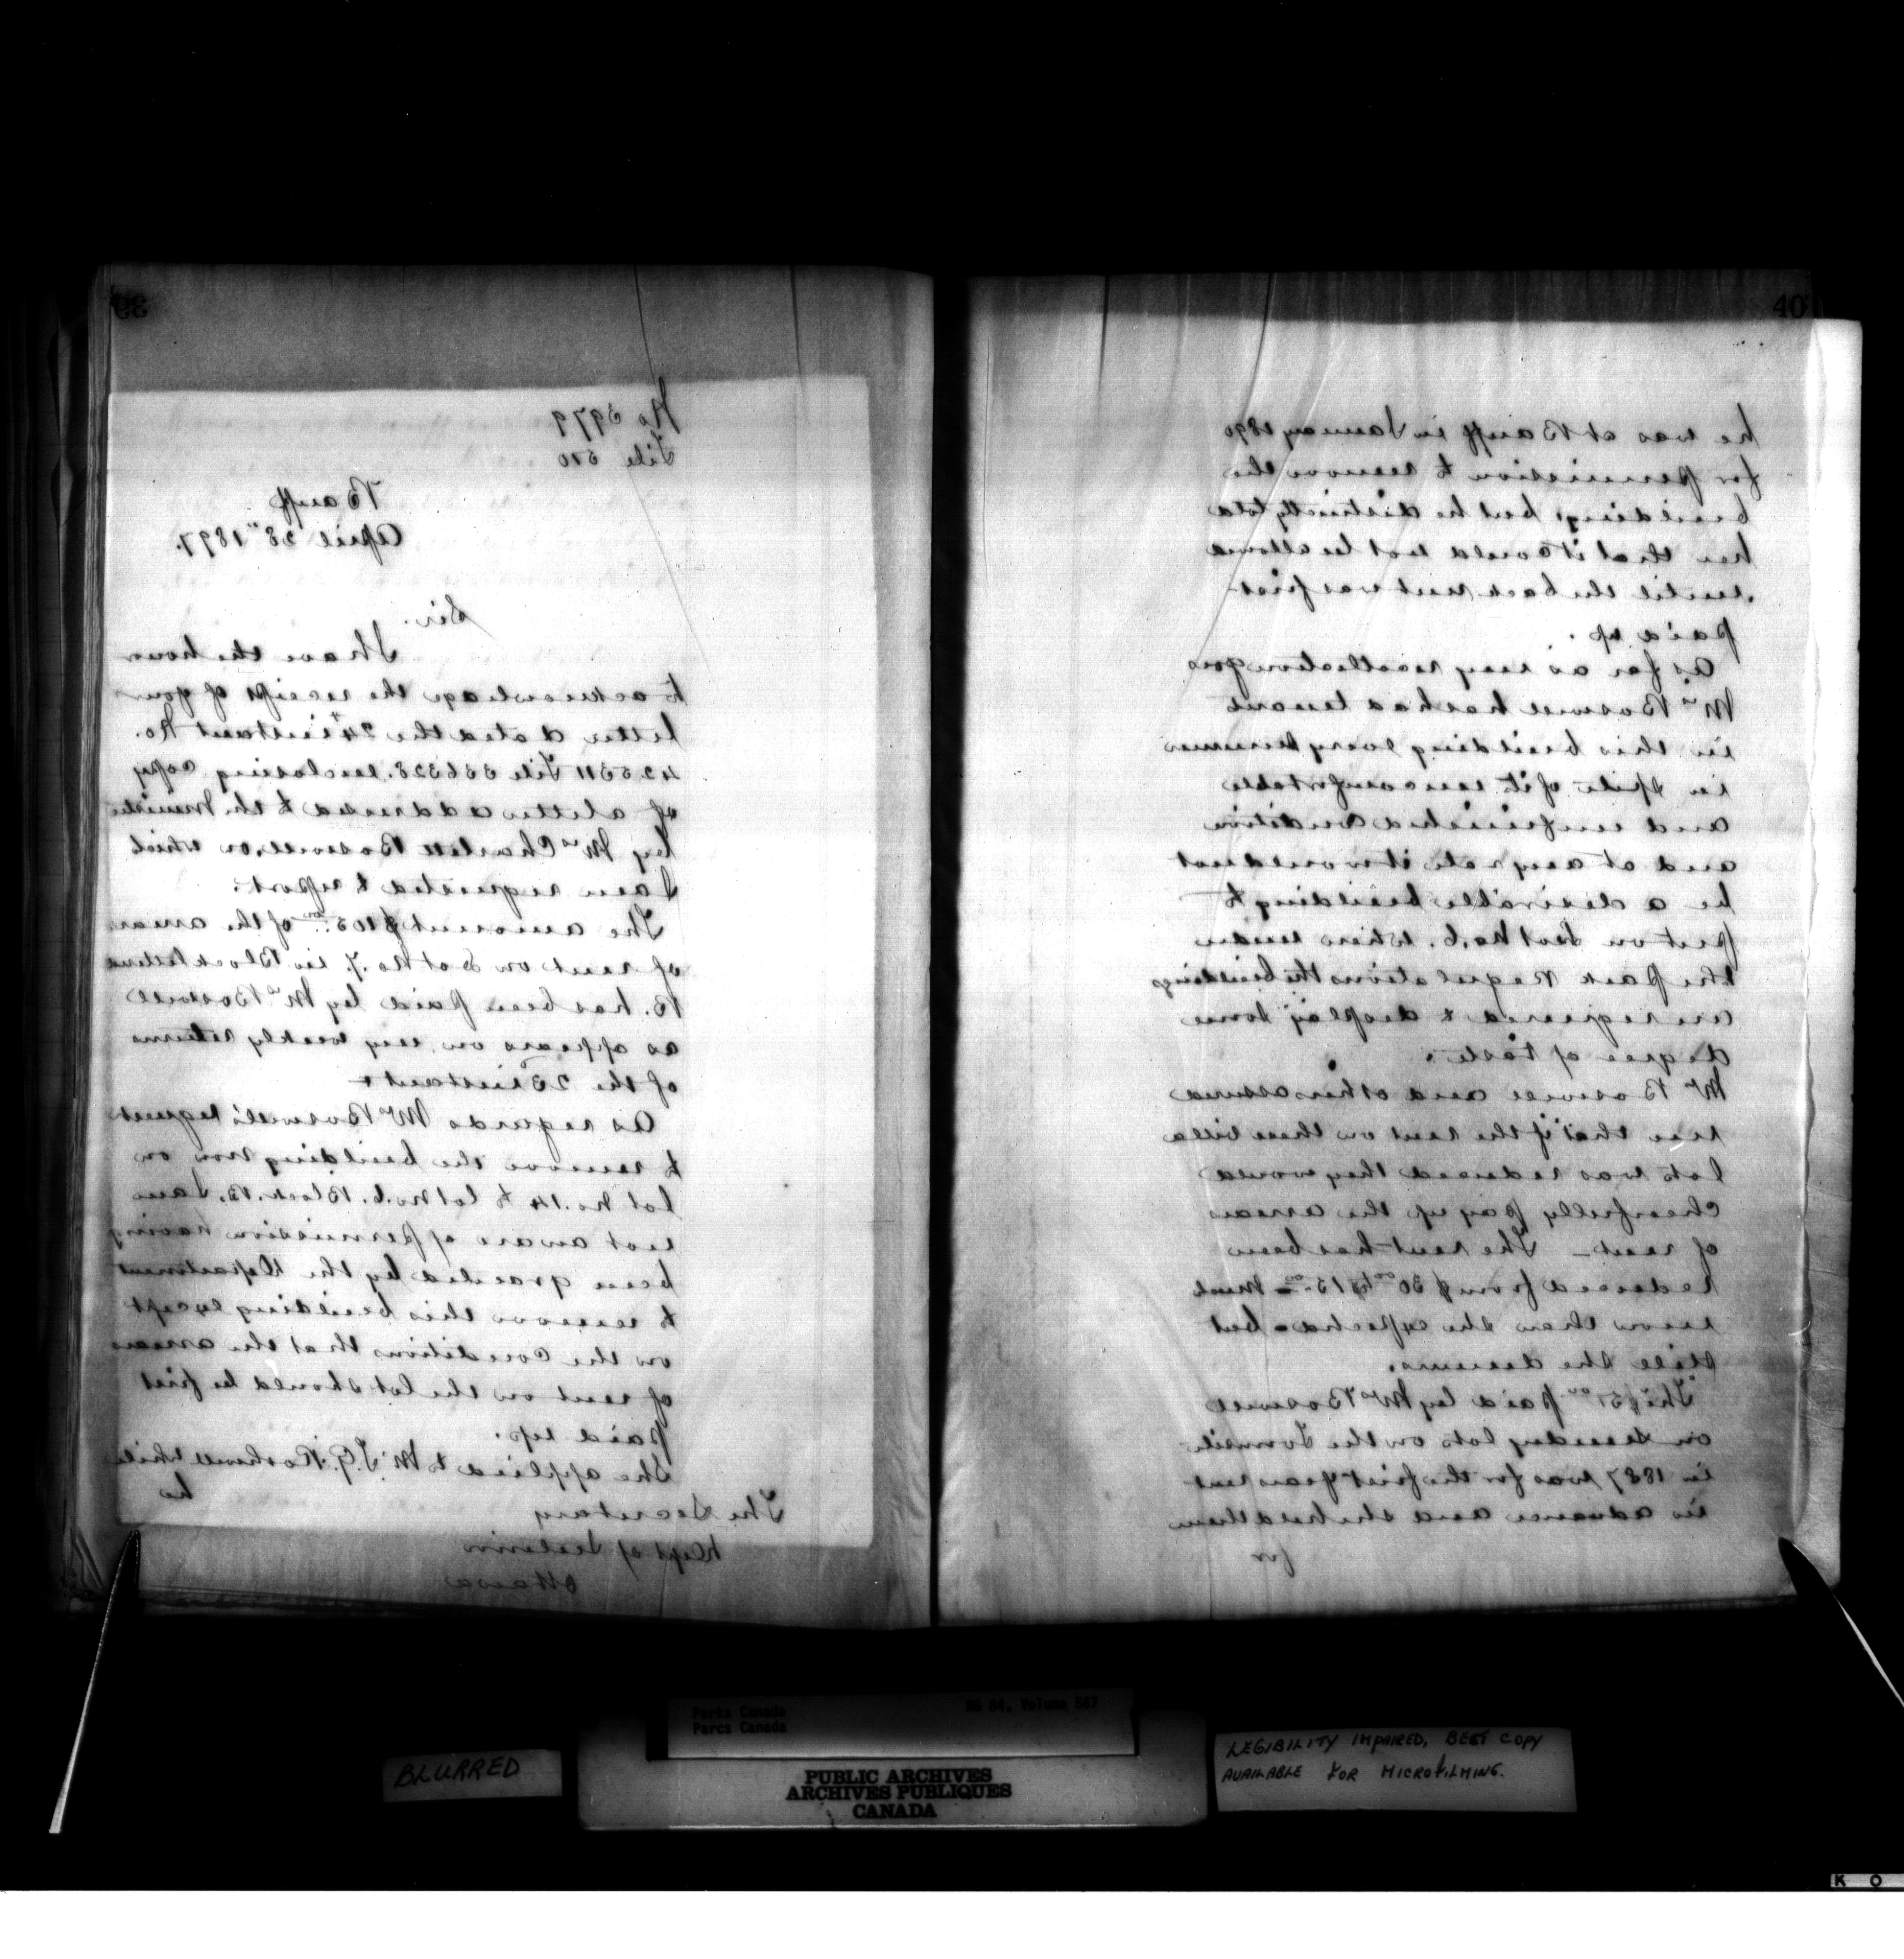 39
No 3979
File 510
Banff
April 28th 1897.
Sir.
I have the honor
to acknowledge the receipt of your
letter dated the 24th instant No.
425311 File 336328. enclosing copy
of a letter addressed to the Minister
by Mrs Charlotte Boswell, on which
I am requested to report.
The amount $105.00 of the arrears
of rent on Lot No. 7. in Block lettered
B. has been paid by Mrs Boswell
as appears on my weekly returns
of the 23 instant
As regards Mrs Boswell's request
to remove the building now on
Lot No. 14 to lot No. 6. Block. B. I am
not aware of permission having
been granted by the Department
to remove this building except
on the conditions that the arrears
of rent on the lot should be first
paid up.
She applied to Mr T. G. Rothwell while
he
The Secretary
Dept of Interior
Ottawa
40
he was at Banff in January 1890
for permission to remove the
building, but he distinctly told
her that it would not be allowed
until the back rent was first
paid up.
As far as my recollection goes
Mrs Boswell has had tenant
in this building every summer
in spite of its uncomfortable
and unfinished condition
and at any rate it would not
be a desirable building to
put on Lot No. 6. where under
the Park Regulations the buildings
are required to display some
degree of taste.
Mrs Boswell and others assured
me that if the rent on these villa
lots was reduced they would
cheerfully pay up the arrears
of rent - The rent has been
reduced from $30.00 to $15.00 - much
more than she expected - but
still she demurs.
The $51.00 paid by Mrs Boswell
on lots on the Townsite
in 1887 was for the first years rent
in advance and she held them
for
BLURRED
Parks Canada
Parcs Canada
RG 84, Volume 567
PUBLIC ARCHIVES
ARCHIVES PUBLIQUES
CANADA
LEGIBILITY IMPAIRED, BEST COPY
AVAILABLE FOR MICROFILMING.
K O